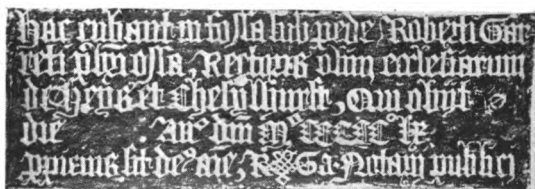 Hac cubant in fossa sub pede Roberti Gar
reti p̄sm ossa, Rectoris olim ecclesiarum
de Heyꝭ et Chelyssinst, Qui obijt
die : Anº dm̄ Mº CCCCCº IX
ppicius sit deº aīe, R Ga Notarij publici